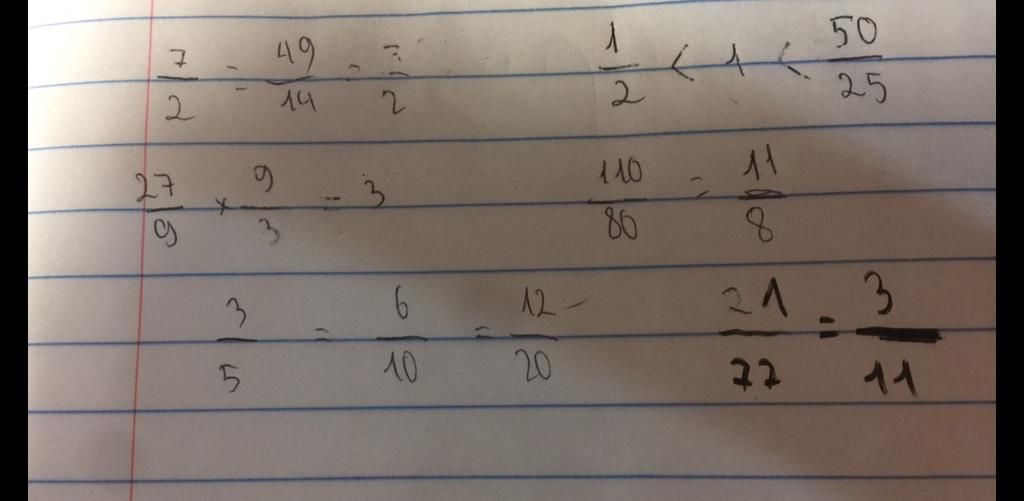 7/2 = 49/14 = 7/2    1/2 < 1 < 50/25
27/9 × 9/3 = 3    110/80 = 11/8
3/5 = 6/10 = 12/20    21/77 = 3/11